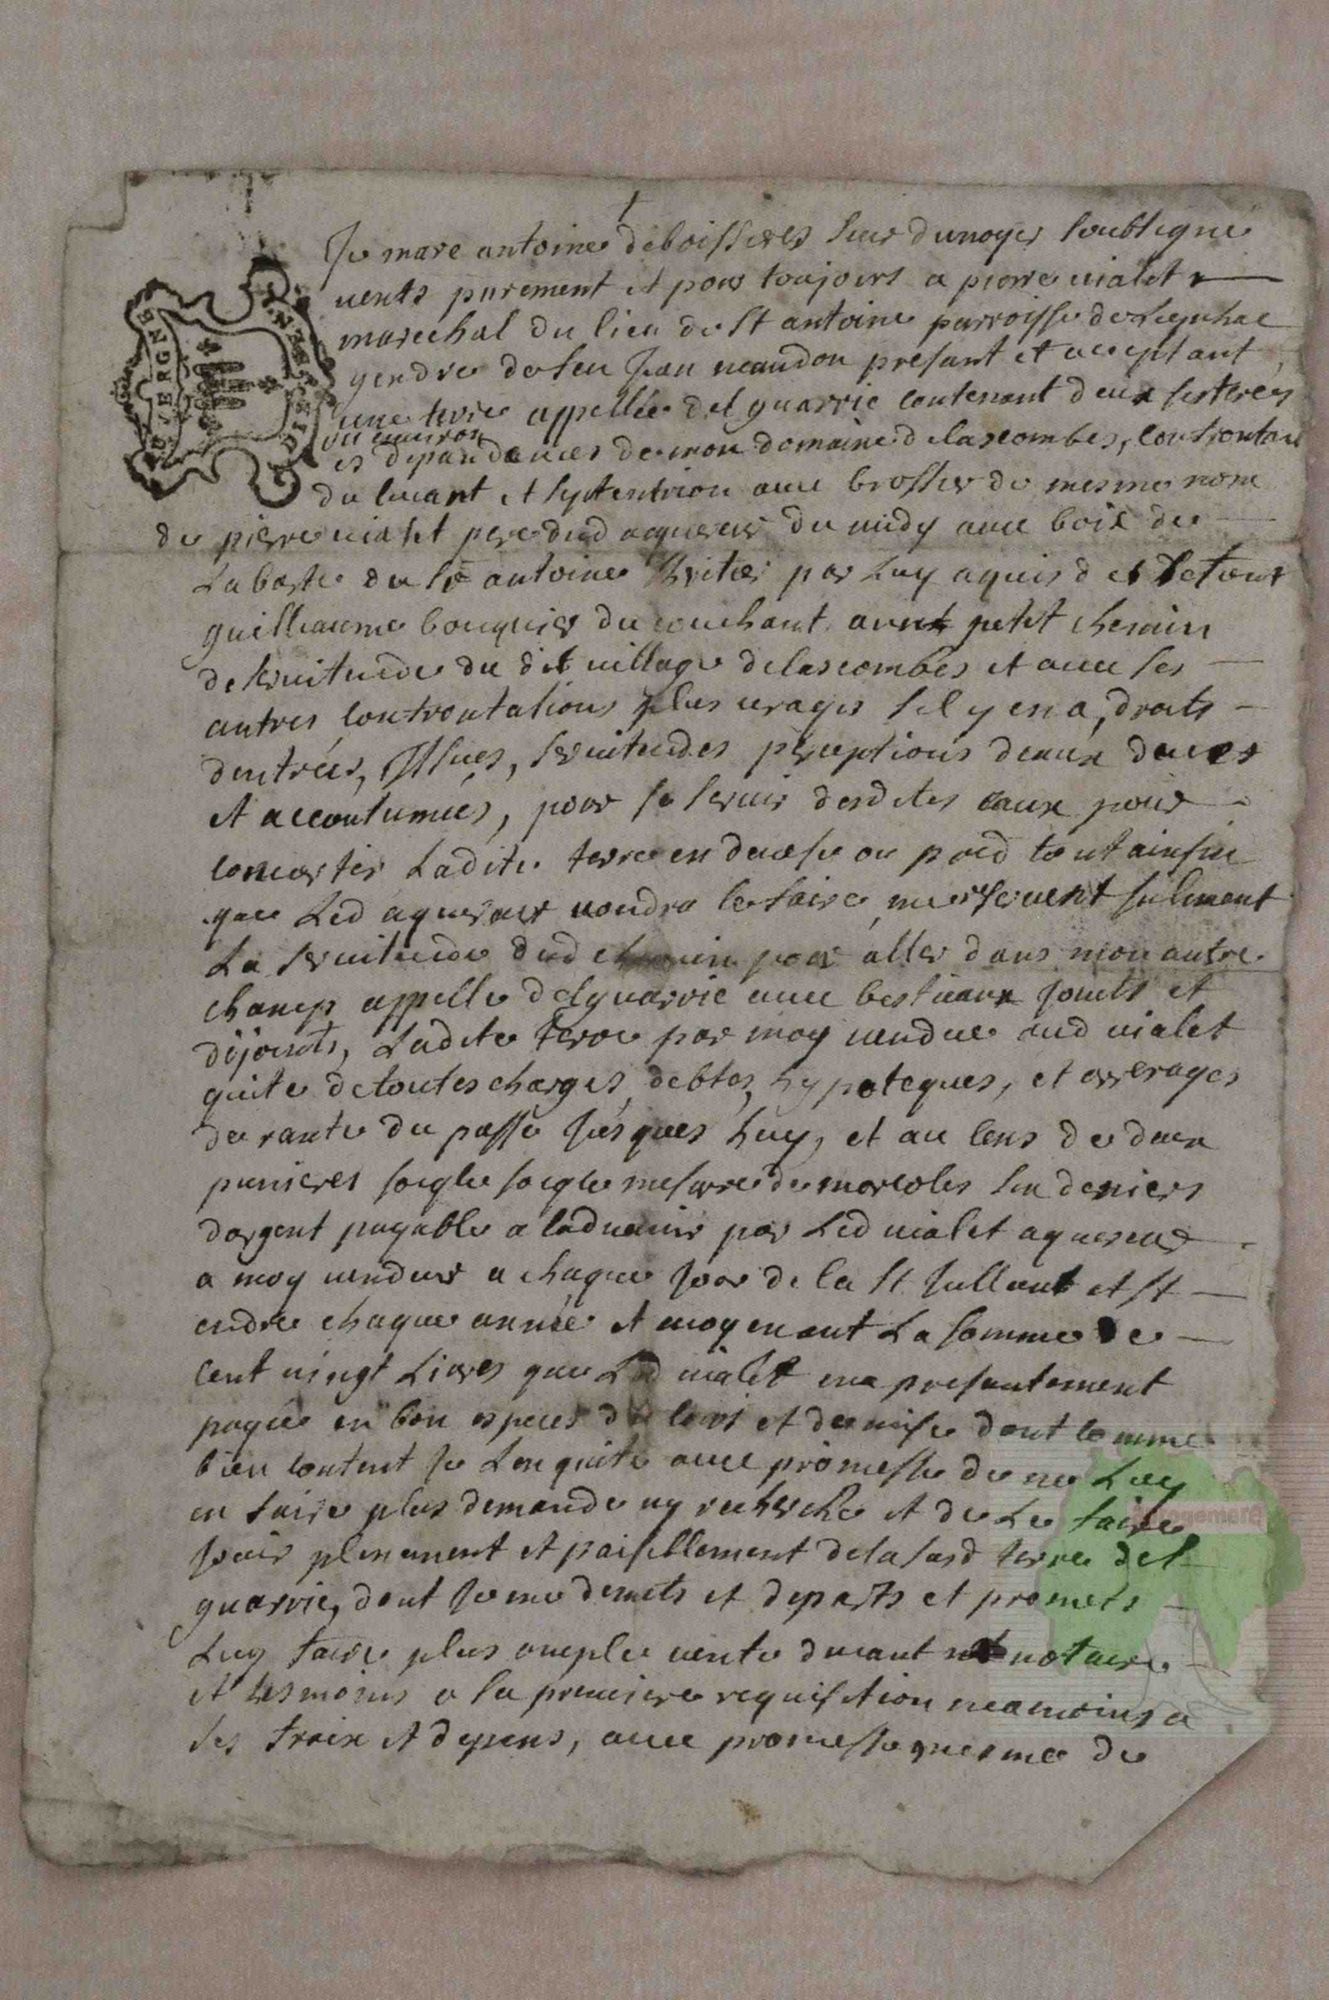 Je marc antoine deboisseres sieur dunoyer soubsigne
vents purement et pour toujours a pierre vialet
marechal du lieu de St antoine parroisse de
gendre de feu Jean neaudon presant et acceptant
une terre appellée del guarrie contenant deux sesterées
ou environ
es dépandences de mon domaine delascombes, confrontan
du levant et septentrion avec brosses de mesme nom
de pierre vialet pere dud aquereur du midy avec boix de
Labaste du Sr antoine par Luy aquis de
guilleaume bouquier du couchant avec petit chemin
de servitude du dit village delascombes et avec ses
autres confrontations plus vrayes s'il y en a, droits
dentrées, Issues, servitudes perceptions deaux deues
et accoutumées, pour se servir desdites eaux pour
convertir Ladite terre en devese ou pred tout ainsin
que Led aquereur voudra le faire, me reservent sulement
La servitude dud chemin pour aller dans mon autre
champ appelle delguarrie avec bestiaux joints et
dijoints, Ladite terre par moy vendue aud vialet
quite de toutes charges, debtes, hypoteques, et arrerages
de rante du passé Jusques huy, et au cens de deux
punieres soigle soigle mesure de marcoles six deniers
dargent payable a ladvenir par Led vialet aquereur
a moy vendeur a chaque jour de la St Jullien et St
andre chaque année et moyenant La somme de
cent vingt Livres que Led vialet ma presentement
payée en bon especes de cours et de mise dont comme
bien content Je Len quite avec promesse de ne Luy
en faire plus demande ny recherche et de Le faire
jouir plenement et paisiblement de la susd terre del
guarrie, dont Je me demets et departs et promets
Luy faire plus ample vente devant notaire
et tesmoins a la premiere requisition neamoins a
ses fraix et depens, avec promesse mesme de
AUVERGNE